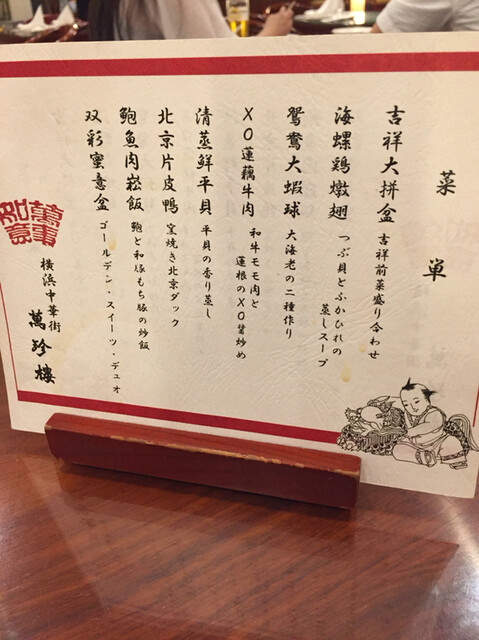 菜単
吉祥大拼盆 吉祥前菜盛り合わせ
海螺鶏燉翅 つぶ貝とふかひれの
蒸しスープ
鴛鴦大蝦球 大海老の二種作り
XO蓮藕牛肉 和牛モモ肉と
蓮根のXO醤炒め
清蒸鮮平貝 平貝の香り蒸し
北京片皮鴨 窯焼き北京ダック
鮑魚肉崧飯 鮑と和豚もち豚の炒飯
双彩蜜意盆 ゴールデン・スイーツ・デュオ
横浜中華街
萬珍樓
萬事
如意